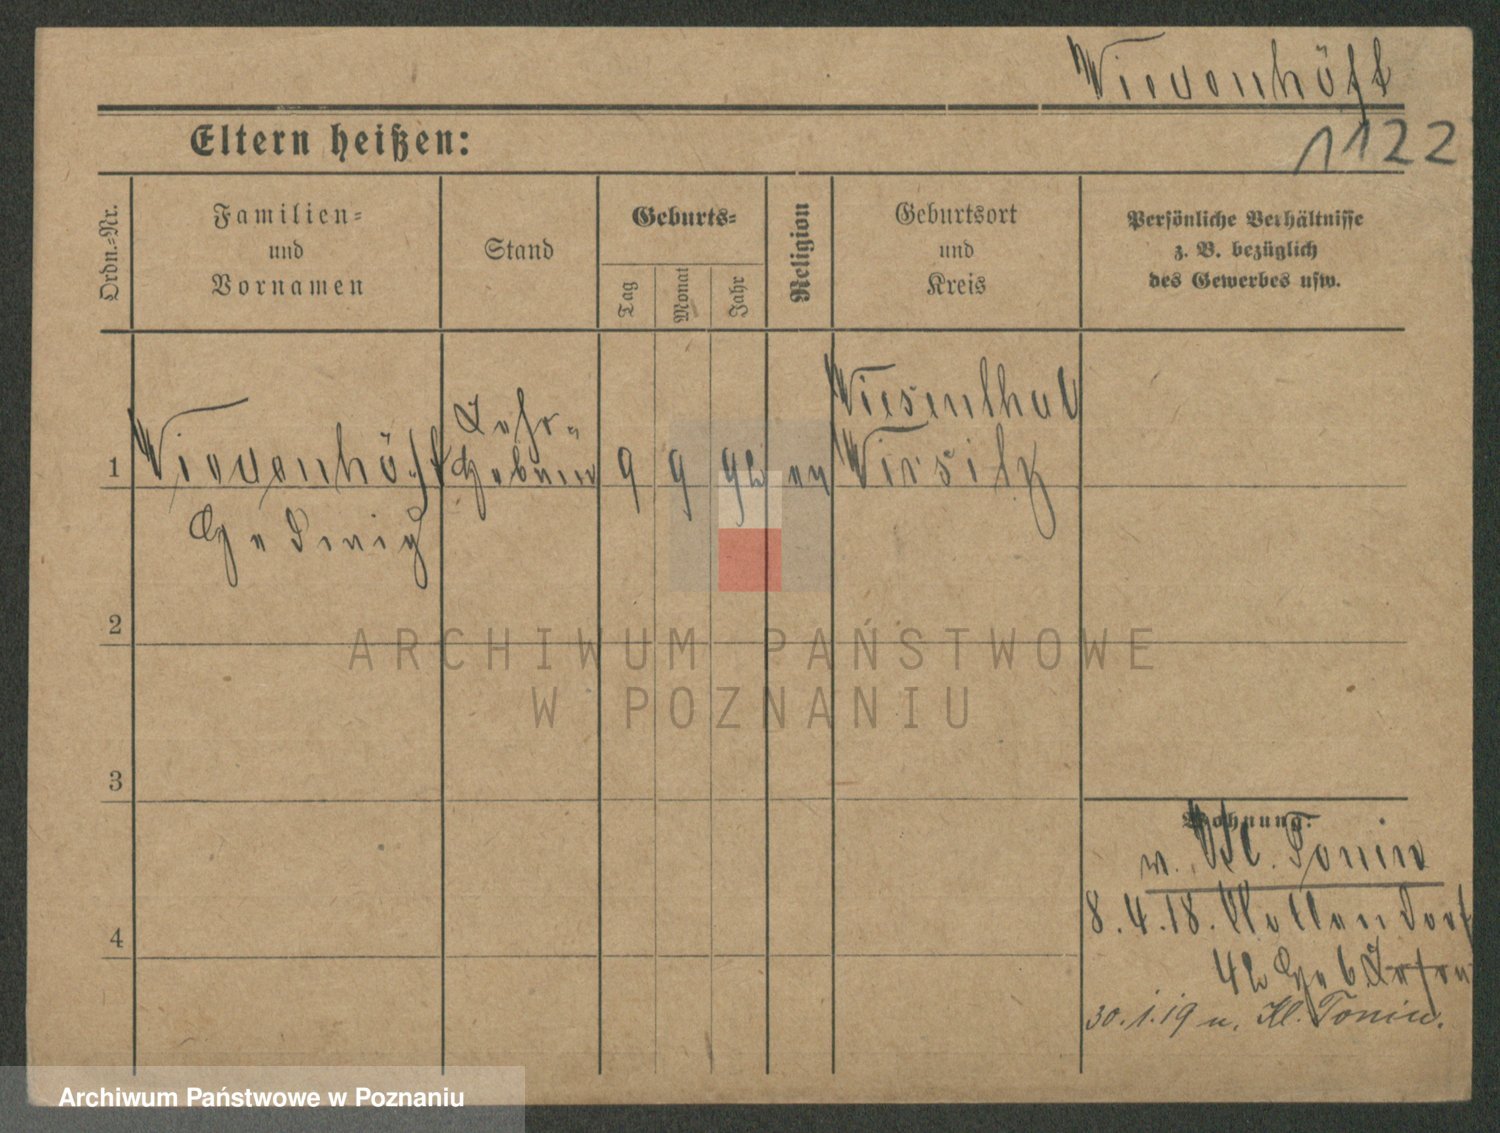 Wiedenhöft
1122
Eltern heißen:
Ordn.=Nr.
Familien=
und
Vornamen
Stand
Geburts=
Tag
Monat
Jahr
Religion
Geburtsort
und
Kreis
Persönliche Verhältnisse
z. B. bezüglich
des Gewerbes usw.
1
Wiedenhöft
Hedwig
9
9
92
ev
Wiesenthal
Wirsitz
2
3
4
Wohnung:
n. Kl. Tonin
8.4.18.
42
30.1.19 n. Kl. Tonin.
ARCHIWUM PAŃSTWOWE
W POZNANIU
Archiwum Państwowe w Poznaniu